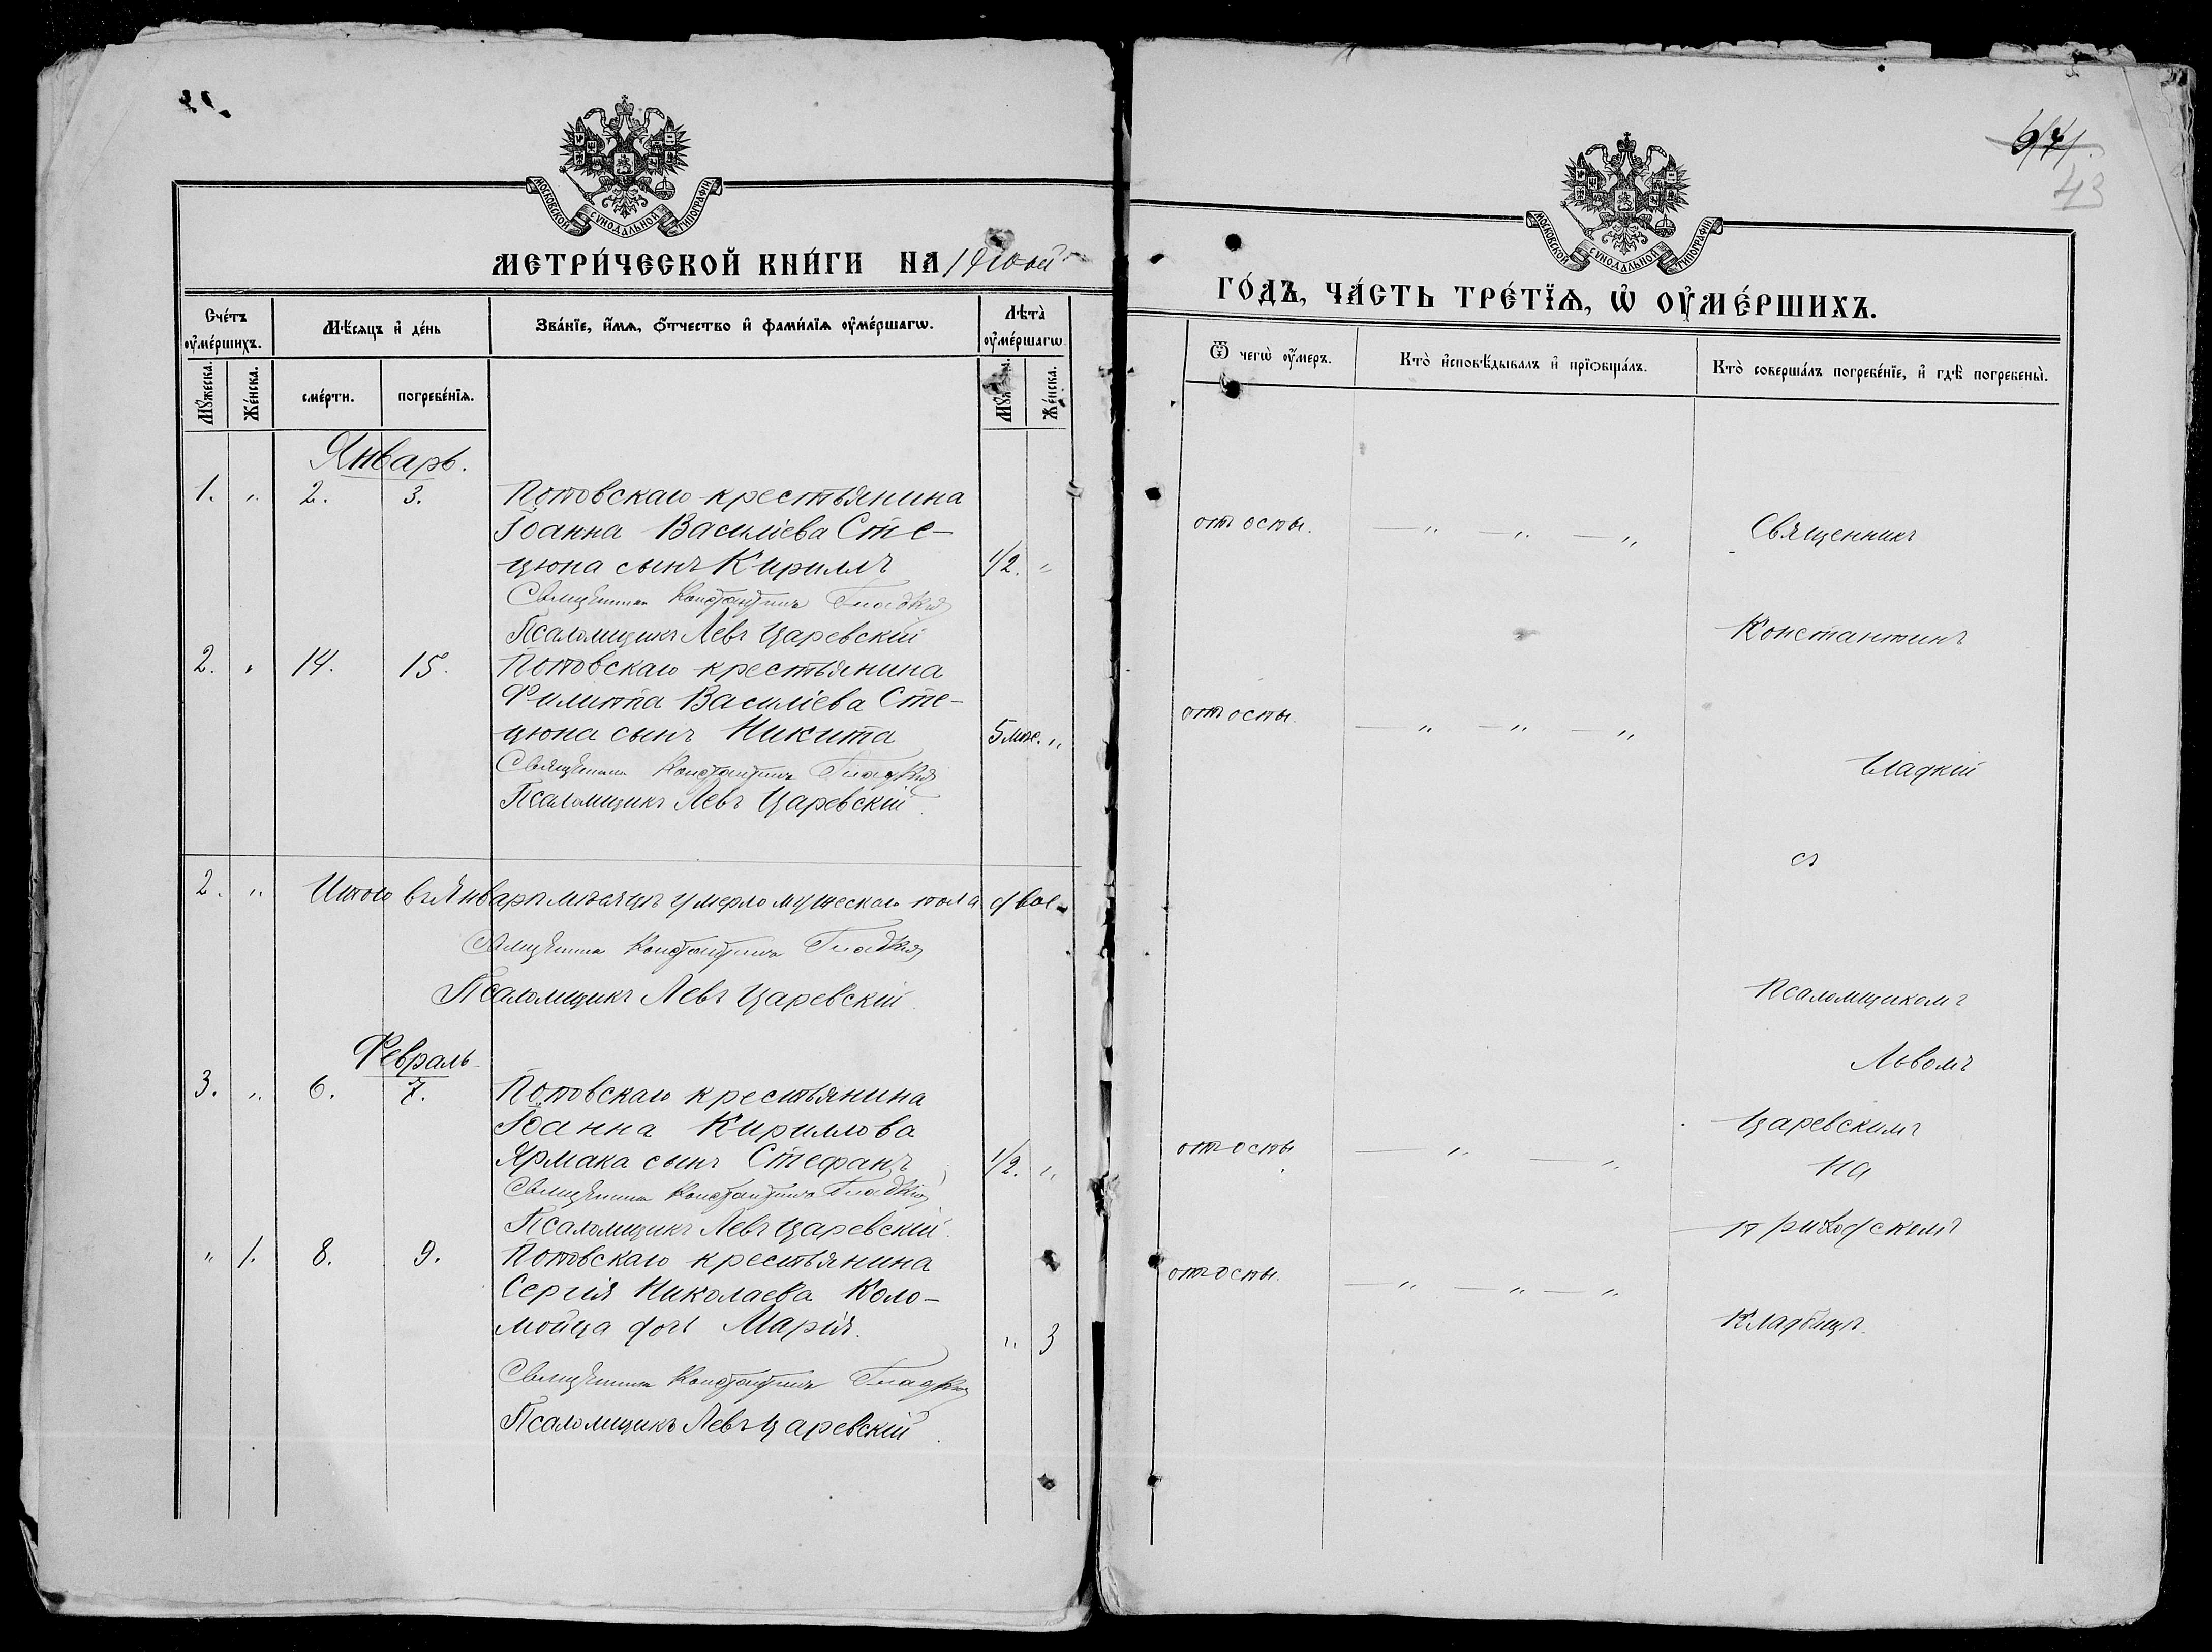 МОСКОВСКОЙ СѴНОДАЛЬНОЙ ТИПОГРАФІИ
МЕТРИ́ЧЕСКОЙ КНИ́ГИ НА
Сче́тъ ᲂу҆ме́ршихъ.
Мѣ́сяцъ и҆ де́нь
Зва́нїе, и҆́мѧ, ѻ҆́тчество и҆ фамѝлїѧ ᲂу҆ме́ршагѡ.
Лѣта̀ ᲂу҆ме́ршагѡ
Мꙋ́жеска.
Же́нска.
сме́рти.
погребе́нїѧ.
Же́нска.
Январь.
1. „ 2. 3. Поповскаго крестьянина
Іоанна Василіева Сте-
цюпа сынъ Кириллъ 1/2. „
Священникъ Константинъ Гладкій
Псаломщикъ Левъ Царевскій
2. „ 14. 15. Поповскаго крестьянина
Филиппа Василіева Сте-
цюпа сынъ Никита 5 мѣс. „
Священникъ Константинъ Гладкій
Псаломщикъ Левъ Царевскій.
2. „ Итого въ Январѣ мѣсяцѣ умерло мужескаго пола двое.
Священникъ Константинъ Гладкій
Псаломщикъ Левъ Царевскій.
Февраль.
3. „ 6. 7. Поповскаго крестьянина
Іоанна Кириллова
Ярмака сынъ Стефанъ 1/2. „
Священникъ Константинъ Гладкій
Псаломщикъ Левъ Царевскій.
„ 1. 8. 9. Поповскаго крестьянина
Сергія Николаева Коло-
мойца дочь Марія. „ 3
Священникъ Константинъ Гладкій
Псаломщикъ Левъ Царевскій.
43
МОСКОВСКОЙ СѴНОДАЛЬНОЙ ТИПОГРАФІИ
ГО́ДЪ, ЧА́СТЬ ТРЕ́ТЇѦ, Ѡ҆ ОУ҆МЕ́РШИХЪ.
Ѿ чегѡ̀ ᲂу҆́меръ.
Кто̀ и҆сповѣ́дывалъ и҆ прїѡбща́лъ.
Кто̀ соверша́лъ погребе́нїе, и҆ гдѣ̀ погребены̀.
отъ оспы. — „ — „ — „ Священникъ
Константинъ
отъ оспы. — „ — „ — „
Гладкій
съ
Псаломщикомъ
Львомъ
Царевскимъ
отъ оспы — „ — „
на
приходскомъ
отъ оспы. — „ — „ — „
кладбищѣ.